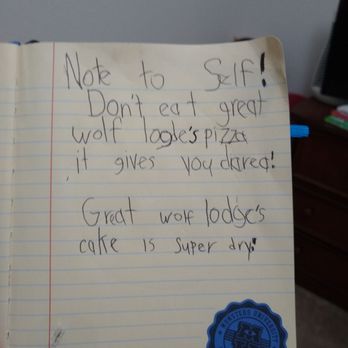 Note to Self!
Don't eat great
wolf logde's pizza
it gives you darea!
Great wolf lodge's
cake is super dry!
MONSTERS UNIVERSITY